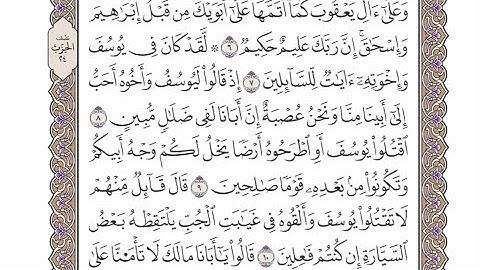 وَعَلَىٰٓ ءَالِ يَعْقُوبَ كَمَآ أَتَمَّهَا عَلَىٰٓ أَبَوَيْكَ مِن قَبْلُ إِبْرَٰهِيمَ
وَإِسْحَٰقَۚ إِنَّ رَبَّكَ عَلِيمٌ حَكِيمٞ ٦ ۞ لَّقَدْ كَانَ فِي يُوسُفَ
وَإِخْوَتِهِۦٓ ءَايَٰتٞ لِّلسَّآئِلِينَ ٧ إِذْ قَالُواْ لَيُوسُفُ وَأَخُوهُ أَحَبُّ
إِلَىٰٓ أَبِينَا مِنَّا وَنَحْنُ عُصْبَةٌ إِنَّ أَبَانَا لَفِي ضَلَٰلٖ مُّبِينٍ ٨
ٱقْتُلُواْ يُوسُفَ أَوِ ٱطْرَحُوهُ أَرْضٗا يَخْلُ لَكُمْ وَجْهُ أَبِيكُمْ
وَتَكُونُواْ مِنۢ بَعْدِهِۦ قَوْمٗا صَٰلِحِينَ ٩ قَالَ قَآئِلٞ مِّنْهُمْ
لَا تَقْتُلُواْ يُوسُفَ وَأَلْقُوهُ فِي غَيَٰبَتِ ٱلْجُبِّ يَلْتَقِطْهُ بَعْضُ
ٱلسَّيَّارَةِ إِن كُنتُمْ فَٰعِلِينَ ١٠ قَالُواْ يَٰٓأَبَانَا مَالَكَ لَا تَأْمَ۫نَّا عَلَىٰ
نصف
الحزب
٢٤